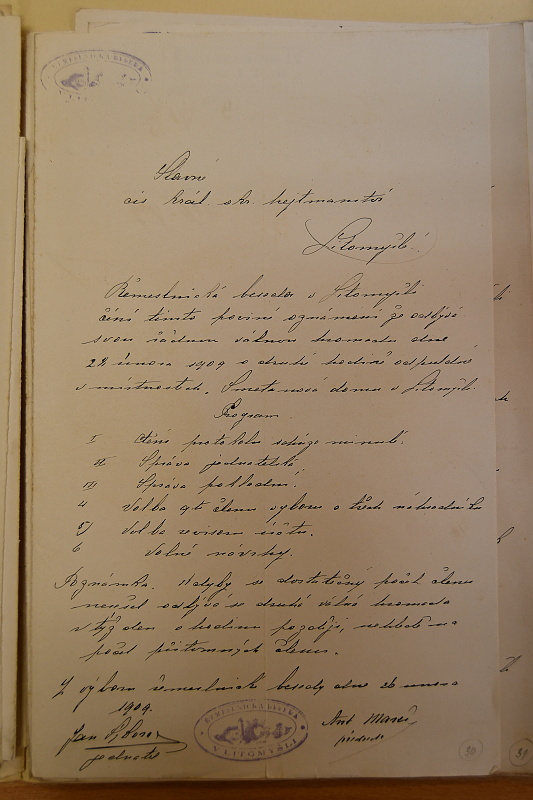 ŘEMESLNICKÁ BESEDA
Slavné
cís král. okr. hejtmanství
Litomyšl.
Řemeslnická beseda v Litomyšli
činí tímto povinné oznámení že odbývá
svou řádnou valnou hromadu dne
1909 o druhé hodině odpoledne
v místnostech Smetanova domu v Litomyšli.
Program
I čtění protokolu schůze minulé.
II Správa jednatelská.
III Správa pokladní.
4 Volba členů výboru a náhradníků
5) Volba revisorů účtů.
6 Volné návrhy.
Poznámka. Kdyby se dostatečný počet členů
nesešel odbývá se druhá valná hromada
v týž den o hodinu později, nehledě na
počet přítomných členů.
Z výboru řemeslnické besedy dne 26 února
1909.
ŘEMESLNICKÁ BESEDA
V LITOMYŠLI
Jan
jednatel
Ant Mareš
předseda
30
31